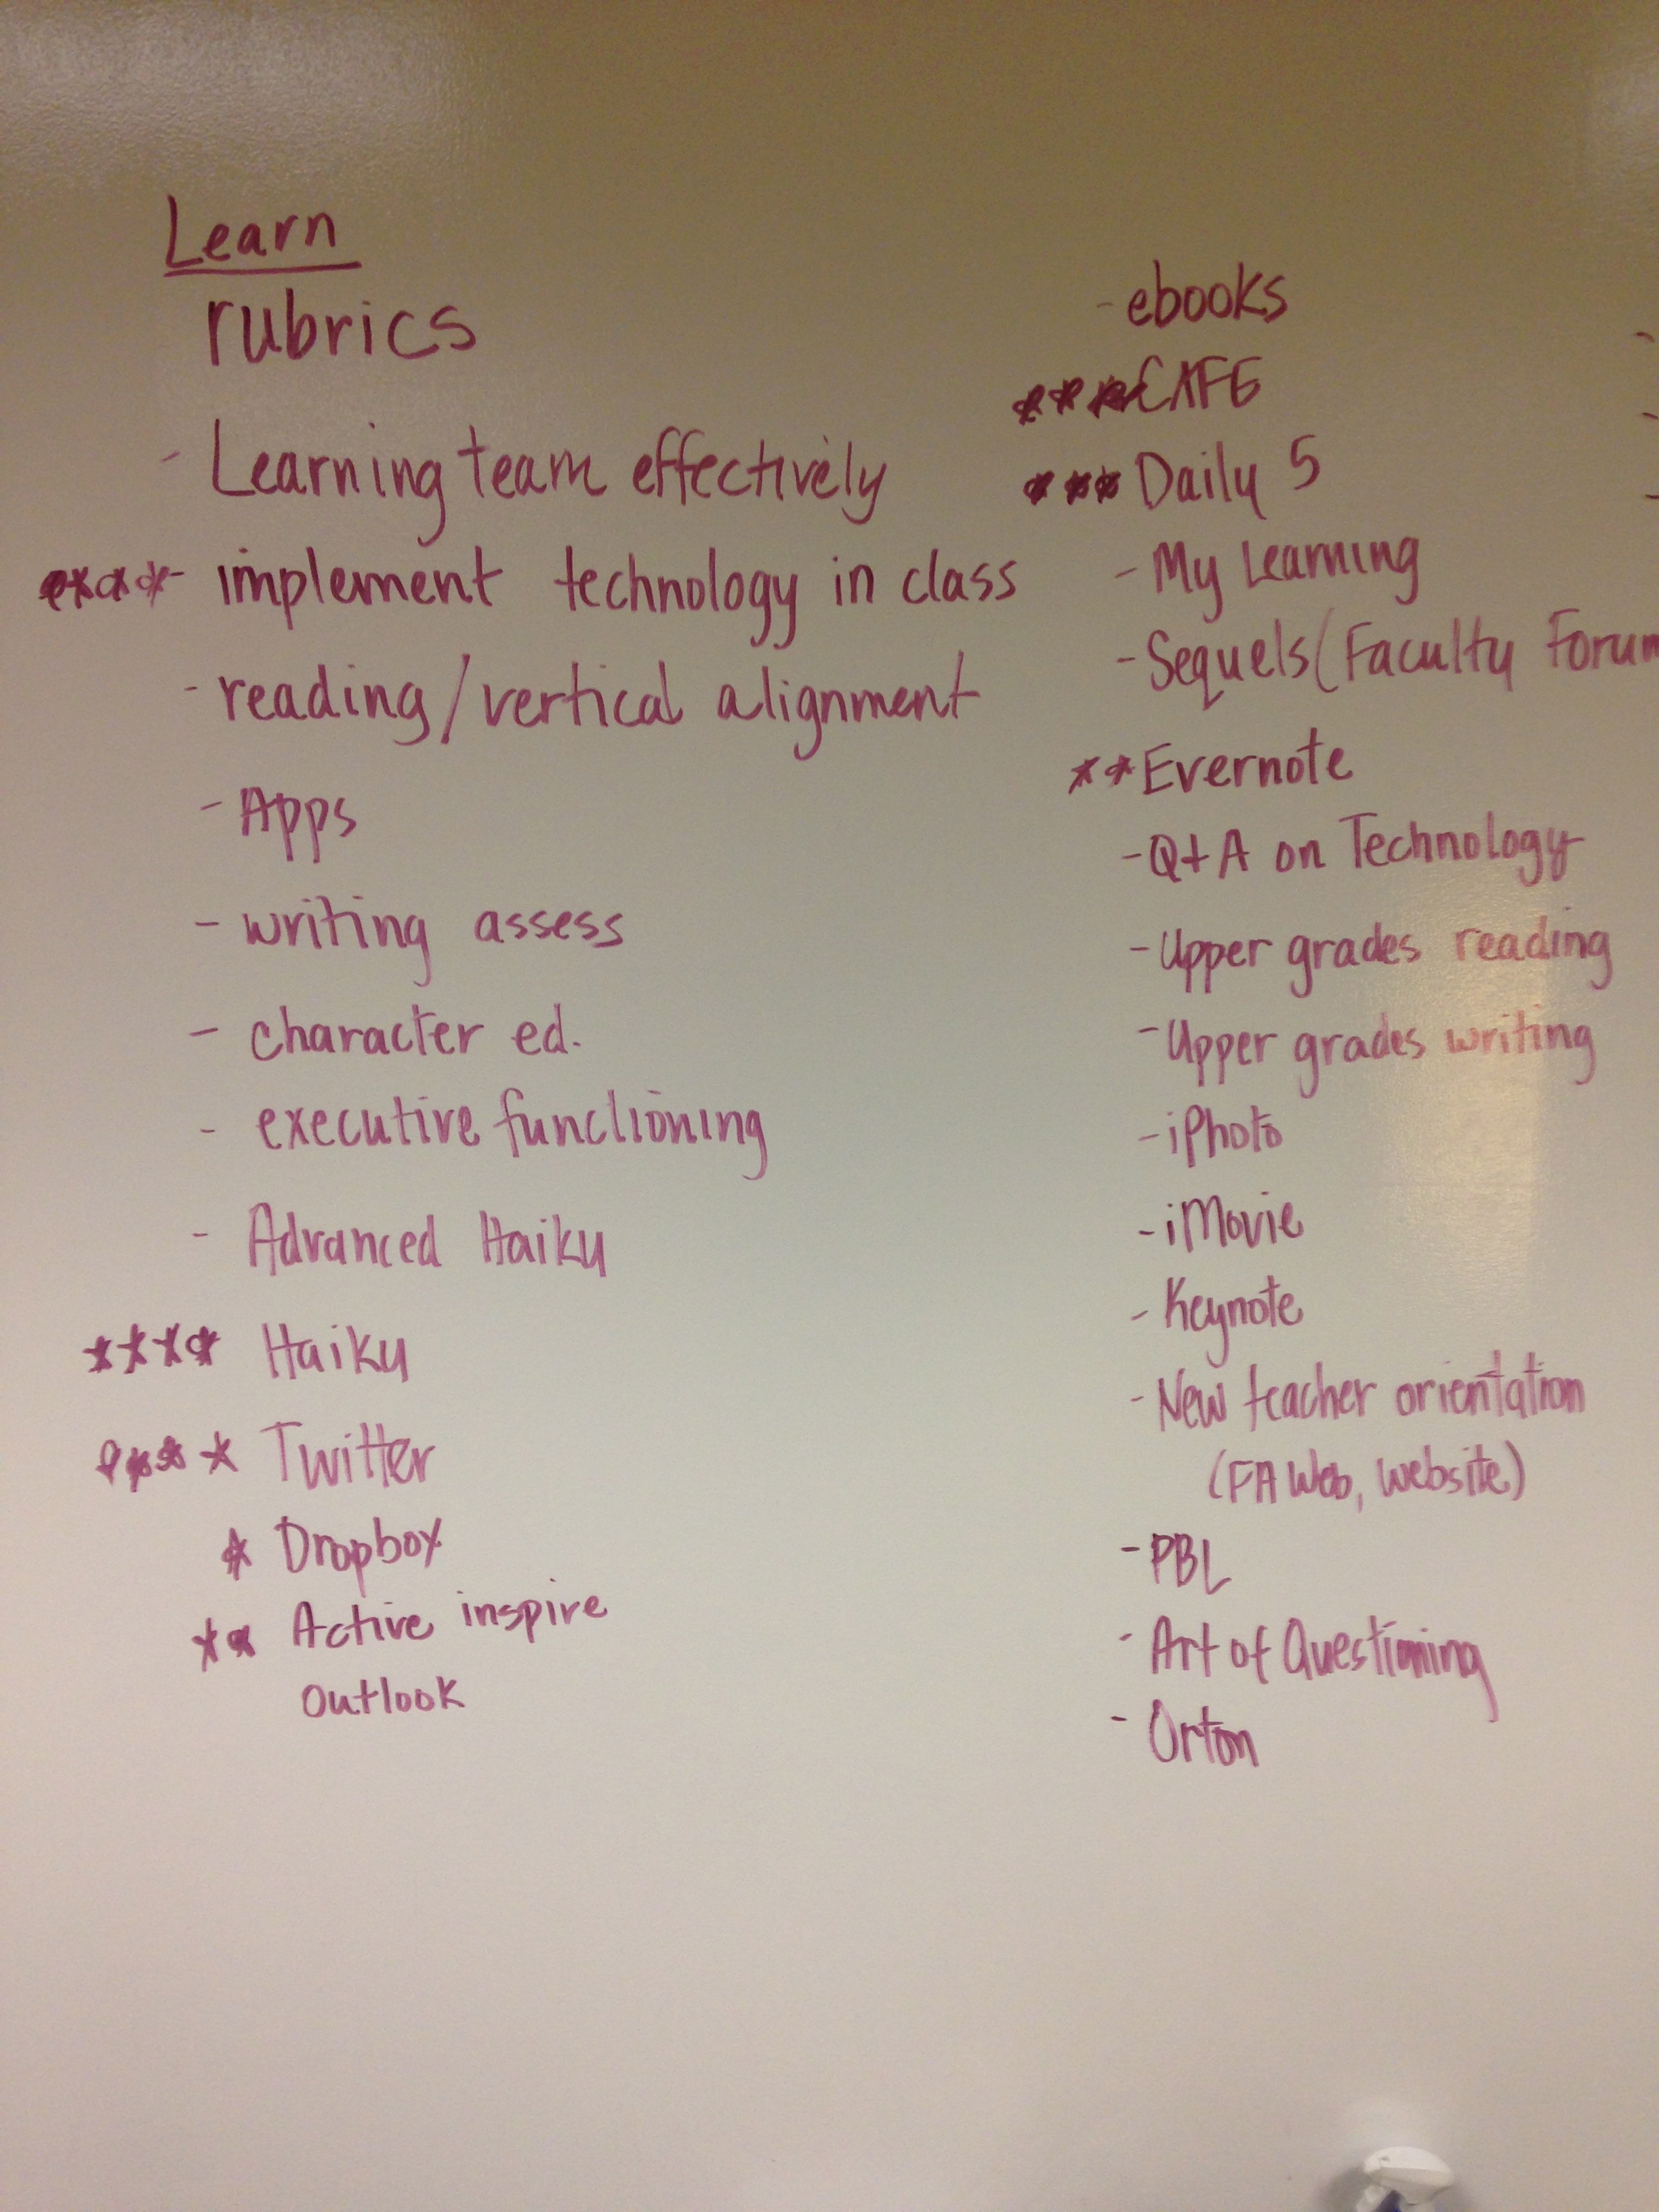 Learn
rubrics
- Learning team effectively
****- implement technology in class
- reading/vertical alignment
- Apps
- writing assess
- character ed.
- executive functioning
- Advanced Haiku
**** Haiku
**** Twitter
* Dropbox
** Active inspire
outlook
- ebooks
*** CAFE
*** Daily 5
- My Learning
- Sequels (Faculty Forum
** Evernote
- Q+A on Technology
- Upper grades reading
- Upper grades writing
- iPhoto
- iMovie
- Keynote
- New teacher orientation
(FA Web, website)
- PBL
- Art of Questioning
- Orton